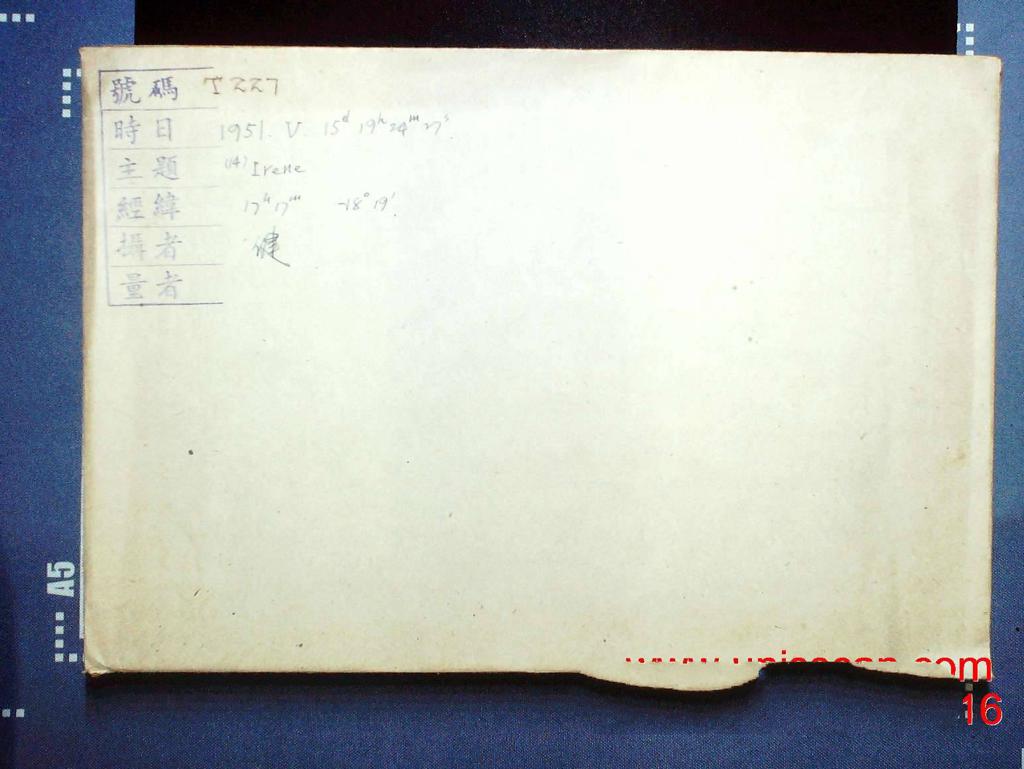 號碼 T 227
時日 1951. V. 15ᵈ 19ʰ 24ᵐ 27ˢ.
主題 (14) Irene
經緯 17ʰ 17ᵐ -18° 19'.
攝者 健
量者
A5
16